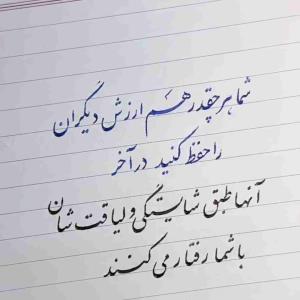 شما هر چقدر هم ارزش دیگران
را حفظ کنید در آخر
آنها طبق شایستگی و لیاقت شان
با شما رفتار می کنند